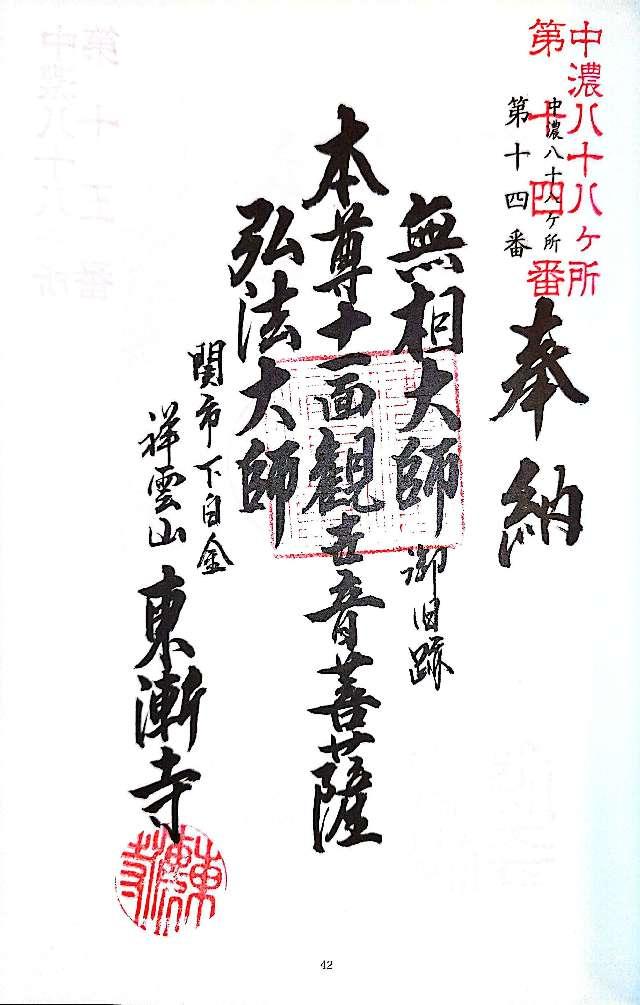 中濃八十八ヶ所
第十四番
中濃八十八ヶ所
第十四番
奉納
無相大師御旧跡
本尊十一面観世音菩薩
弘法大師
関市下白金
祥雲山東漸寺
東漸寺
42